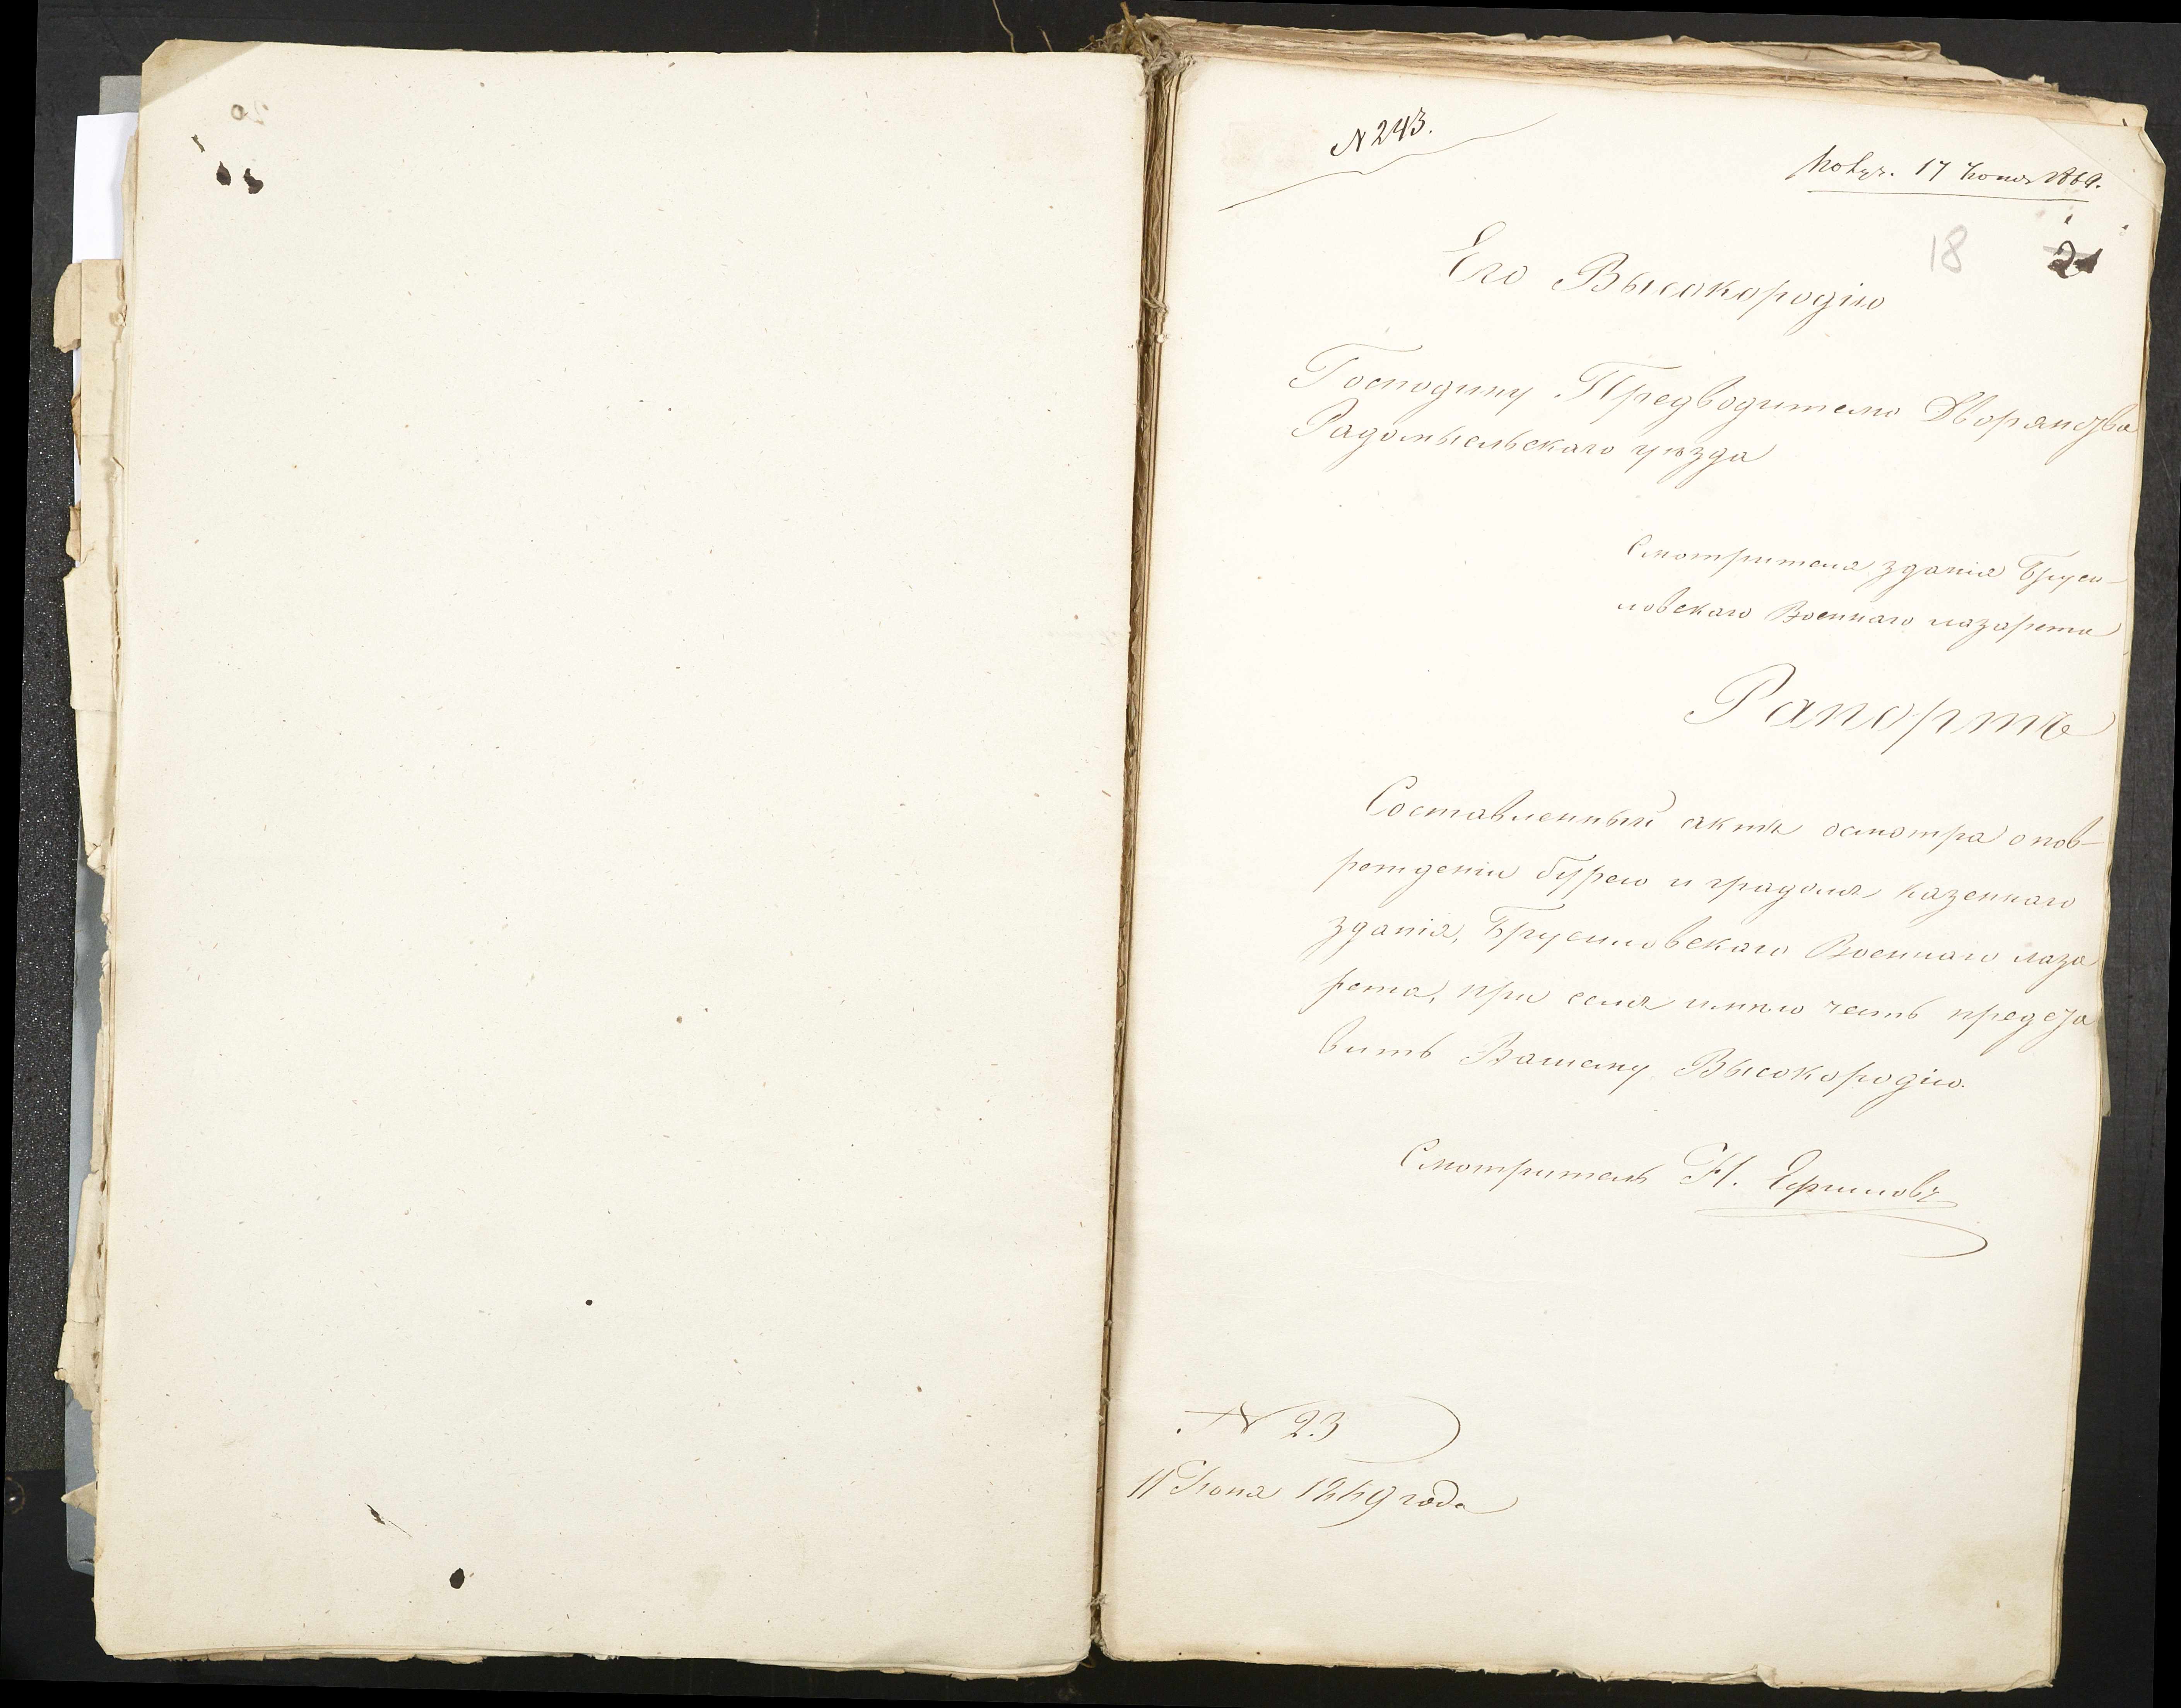 № 243.
Получ. 17 Іюня 1869.
18 21
Его Высокородію
Господину Предводителю Дворянства
Радомысльскаго уѣзда
Смотрителя зданія Бруси-
ловскаго Военнаго лазарета
Рапортъ
Составленный актъ осмотра о пов-
режденіи бурею и градомъ казеннаго
зданія, Брусиловскаго Военнаго лаза
рета, при семъ имѣю честь предста
вить Вашему Высокородію.
Смотритель Н. Ефимовъ
№ 23
11 Іюня 1869 года